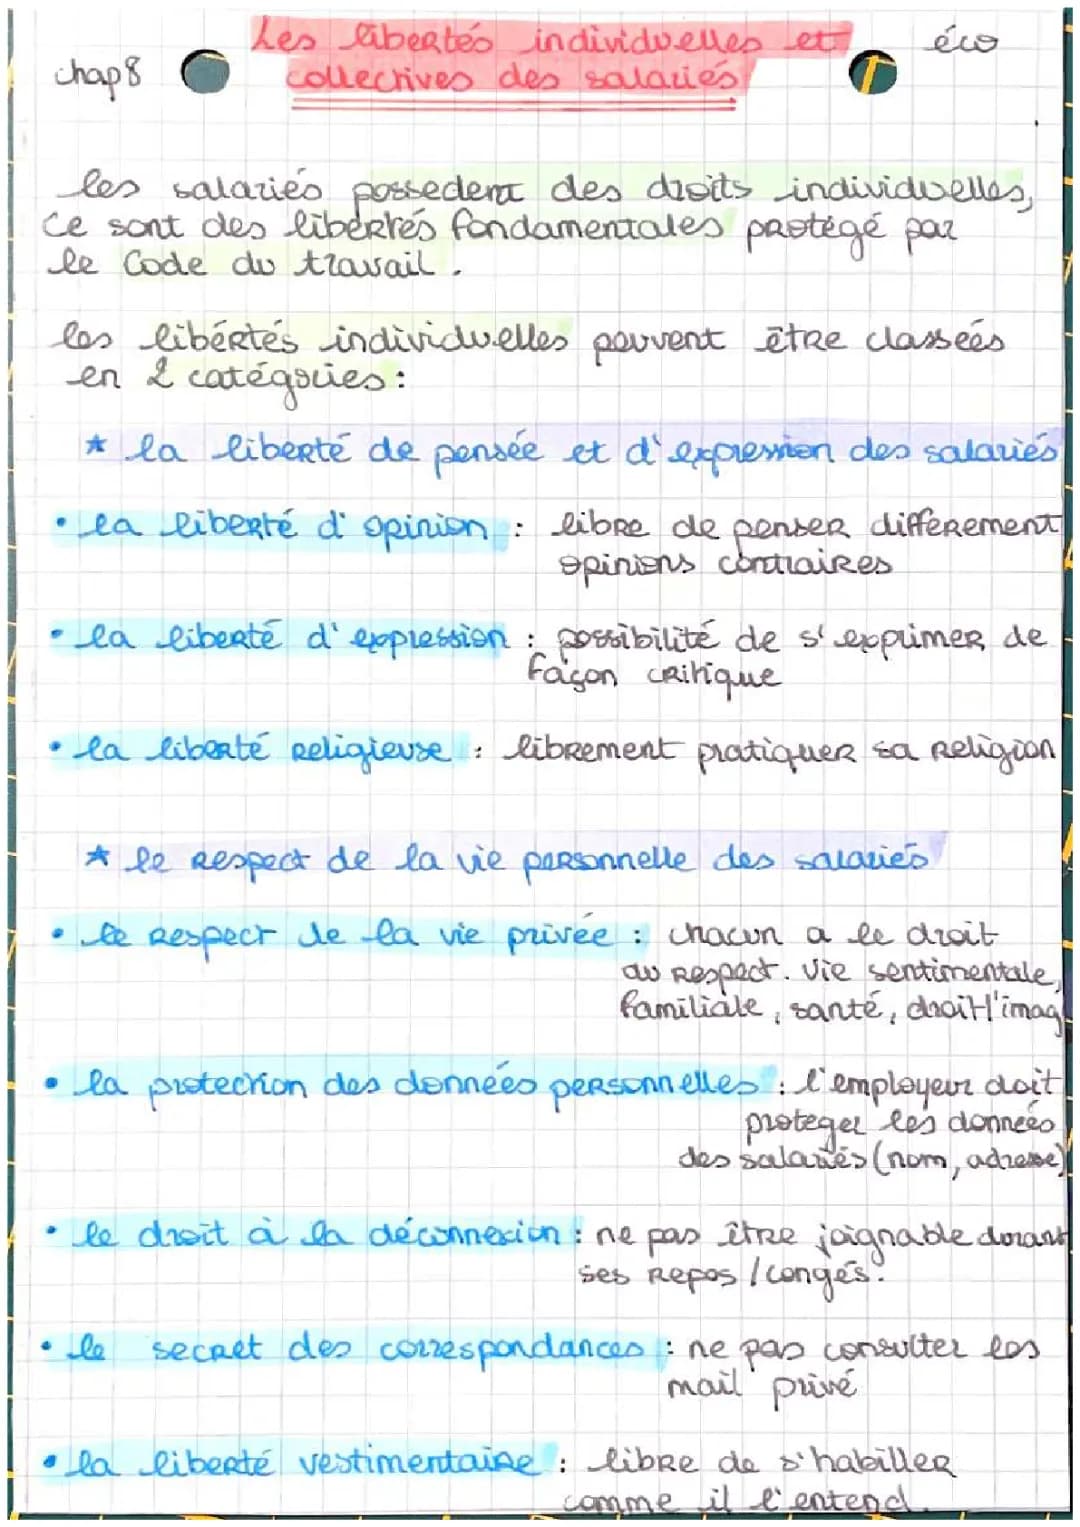 Les libertés individuelles et
éco
chap 8
collectives des salariés
les salariés possedent des droits individuelles,
Ce sont des libertés fondamentales protégé par
le Code du travail.
les libértés individuelles peuvent être classées
en 2 catégories :
* la liberté de pensée et d'expression des salariés
• la liberté d'opinion : libre de penser differement
opinions contraires
• la liberté d'expression : possibilité de s'exprimer de
façon critique
• la liberté religieuse : librement pratiquer sa religion
* le respect de la vie personnelle des salariés
• le respect de la vie privée : chacun a le droit
au respect. Vie sentimentale,
familiale, santé, droit l'imag
• la protection des données personnelles : l'employeur doit
proteger les données
des salariés (nom, adresse)
• le droit à la déconnexion : ne pas être joignable durant
ses repos / congés.
• le secret des correspondances : ne pas consulter les
mail privé
• la liberté vestimentaire : libre de s'habiller
comme il l'entend.